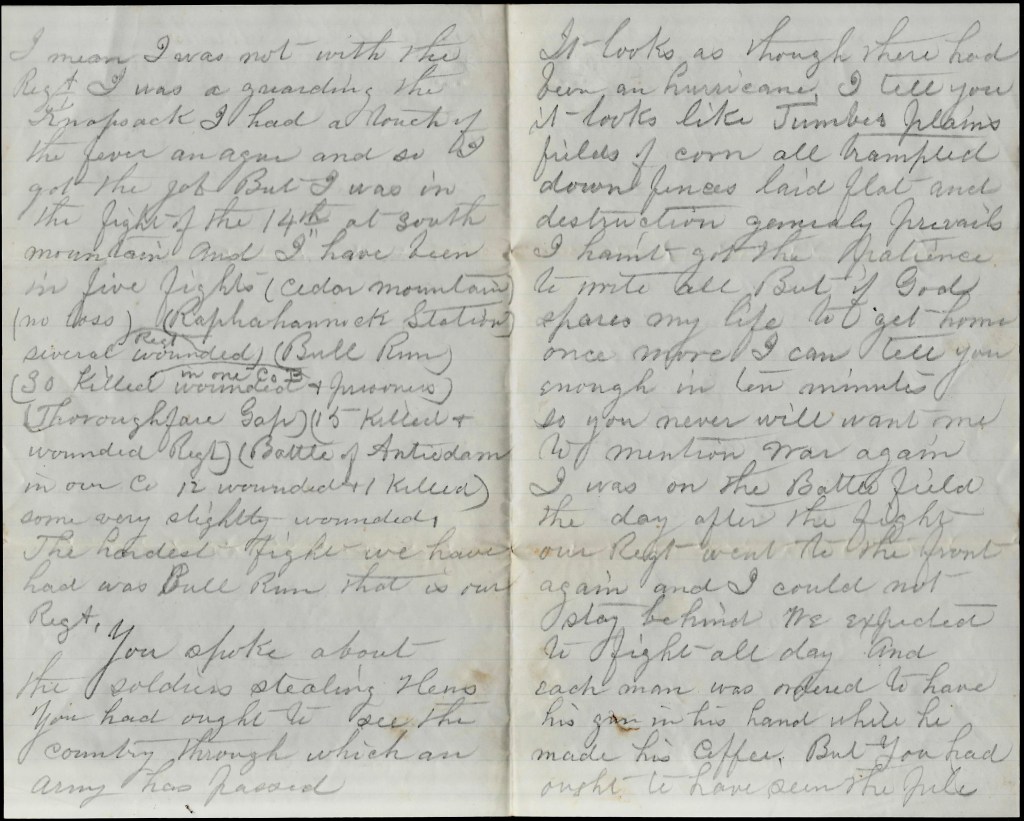 I mean I was not with the
Regt I was a guarding the
Knapsack I had a touch of
the fever an ague and so I
got the job But I was in
the fight of the 14th at South
mountain and I have been
in five fights (Cedar mountain)
(no loss) (Raphahannock Station)
Regt
several wounded) (Bull Run)
in one Co B
(30 Killed wounded & prisoners)
(Thoroughfare Gap) (15 Killed &
wounded Regt) (Battle of Antiedam
in our Co 12 wounded & 1 Killed)
some very slightly wounded,
The hardest fight we have
had was Bull Run that is our
Regt,
You spoke about
the soldiers stealing Hens
You had ought to see the
country through which an
army has passed
It looks as though there had
been an hurricane, I tell you
it looks like Timber plains
fields of corn all trampled
down fences laid flat and
destruction generaly prevails
I haint got the Patience
to write all But if God
spares my life to get home
once more I can tell you
enough in ten minutes
so you never will want me
to mention war again
I was on the Battle field
the day after the fight
our Regt went to the front
again and I could not
stay behind We expected
to fight all day And
each man was ordered to have
his gun in his hand while he
made his Coffee. But You had
ought to have seen the pile